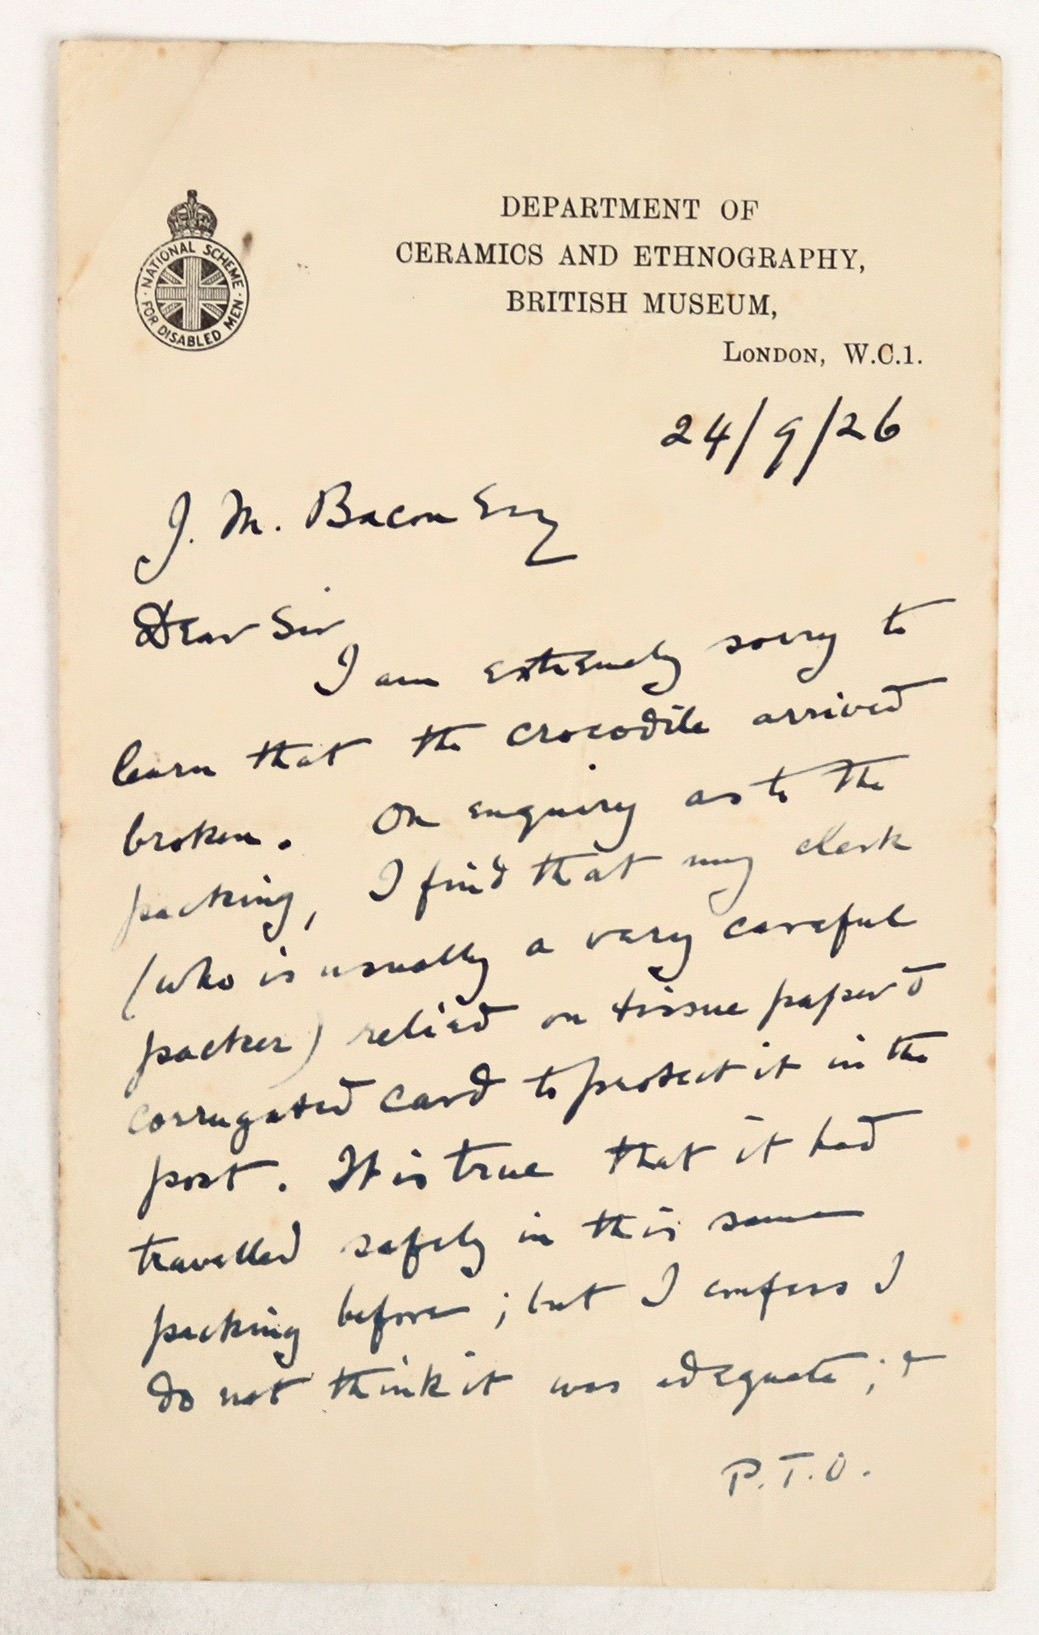 NATIONAL SCHEME
· FOR DISABLED MEN ·
DEPARTMENT OF
CERAMICS AND ETHNOGRAPHY,
BRITISH MUSEUM,
LONDON, W.C.1.
24/9/26
J. M. Bacon Esq
Dear Sir
I am extremely sorry to
learn that the crocodile arrived
broken. On enquiry as to the
packing, I find that my clerk
(who is usually a very careful
packer) relied on tissue paper &
corrugated card to protect it in the
post. It is true that it had
travelled safely in this same
packing before; but I confess I
do not think it was adequate; &
P.T.O.